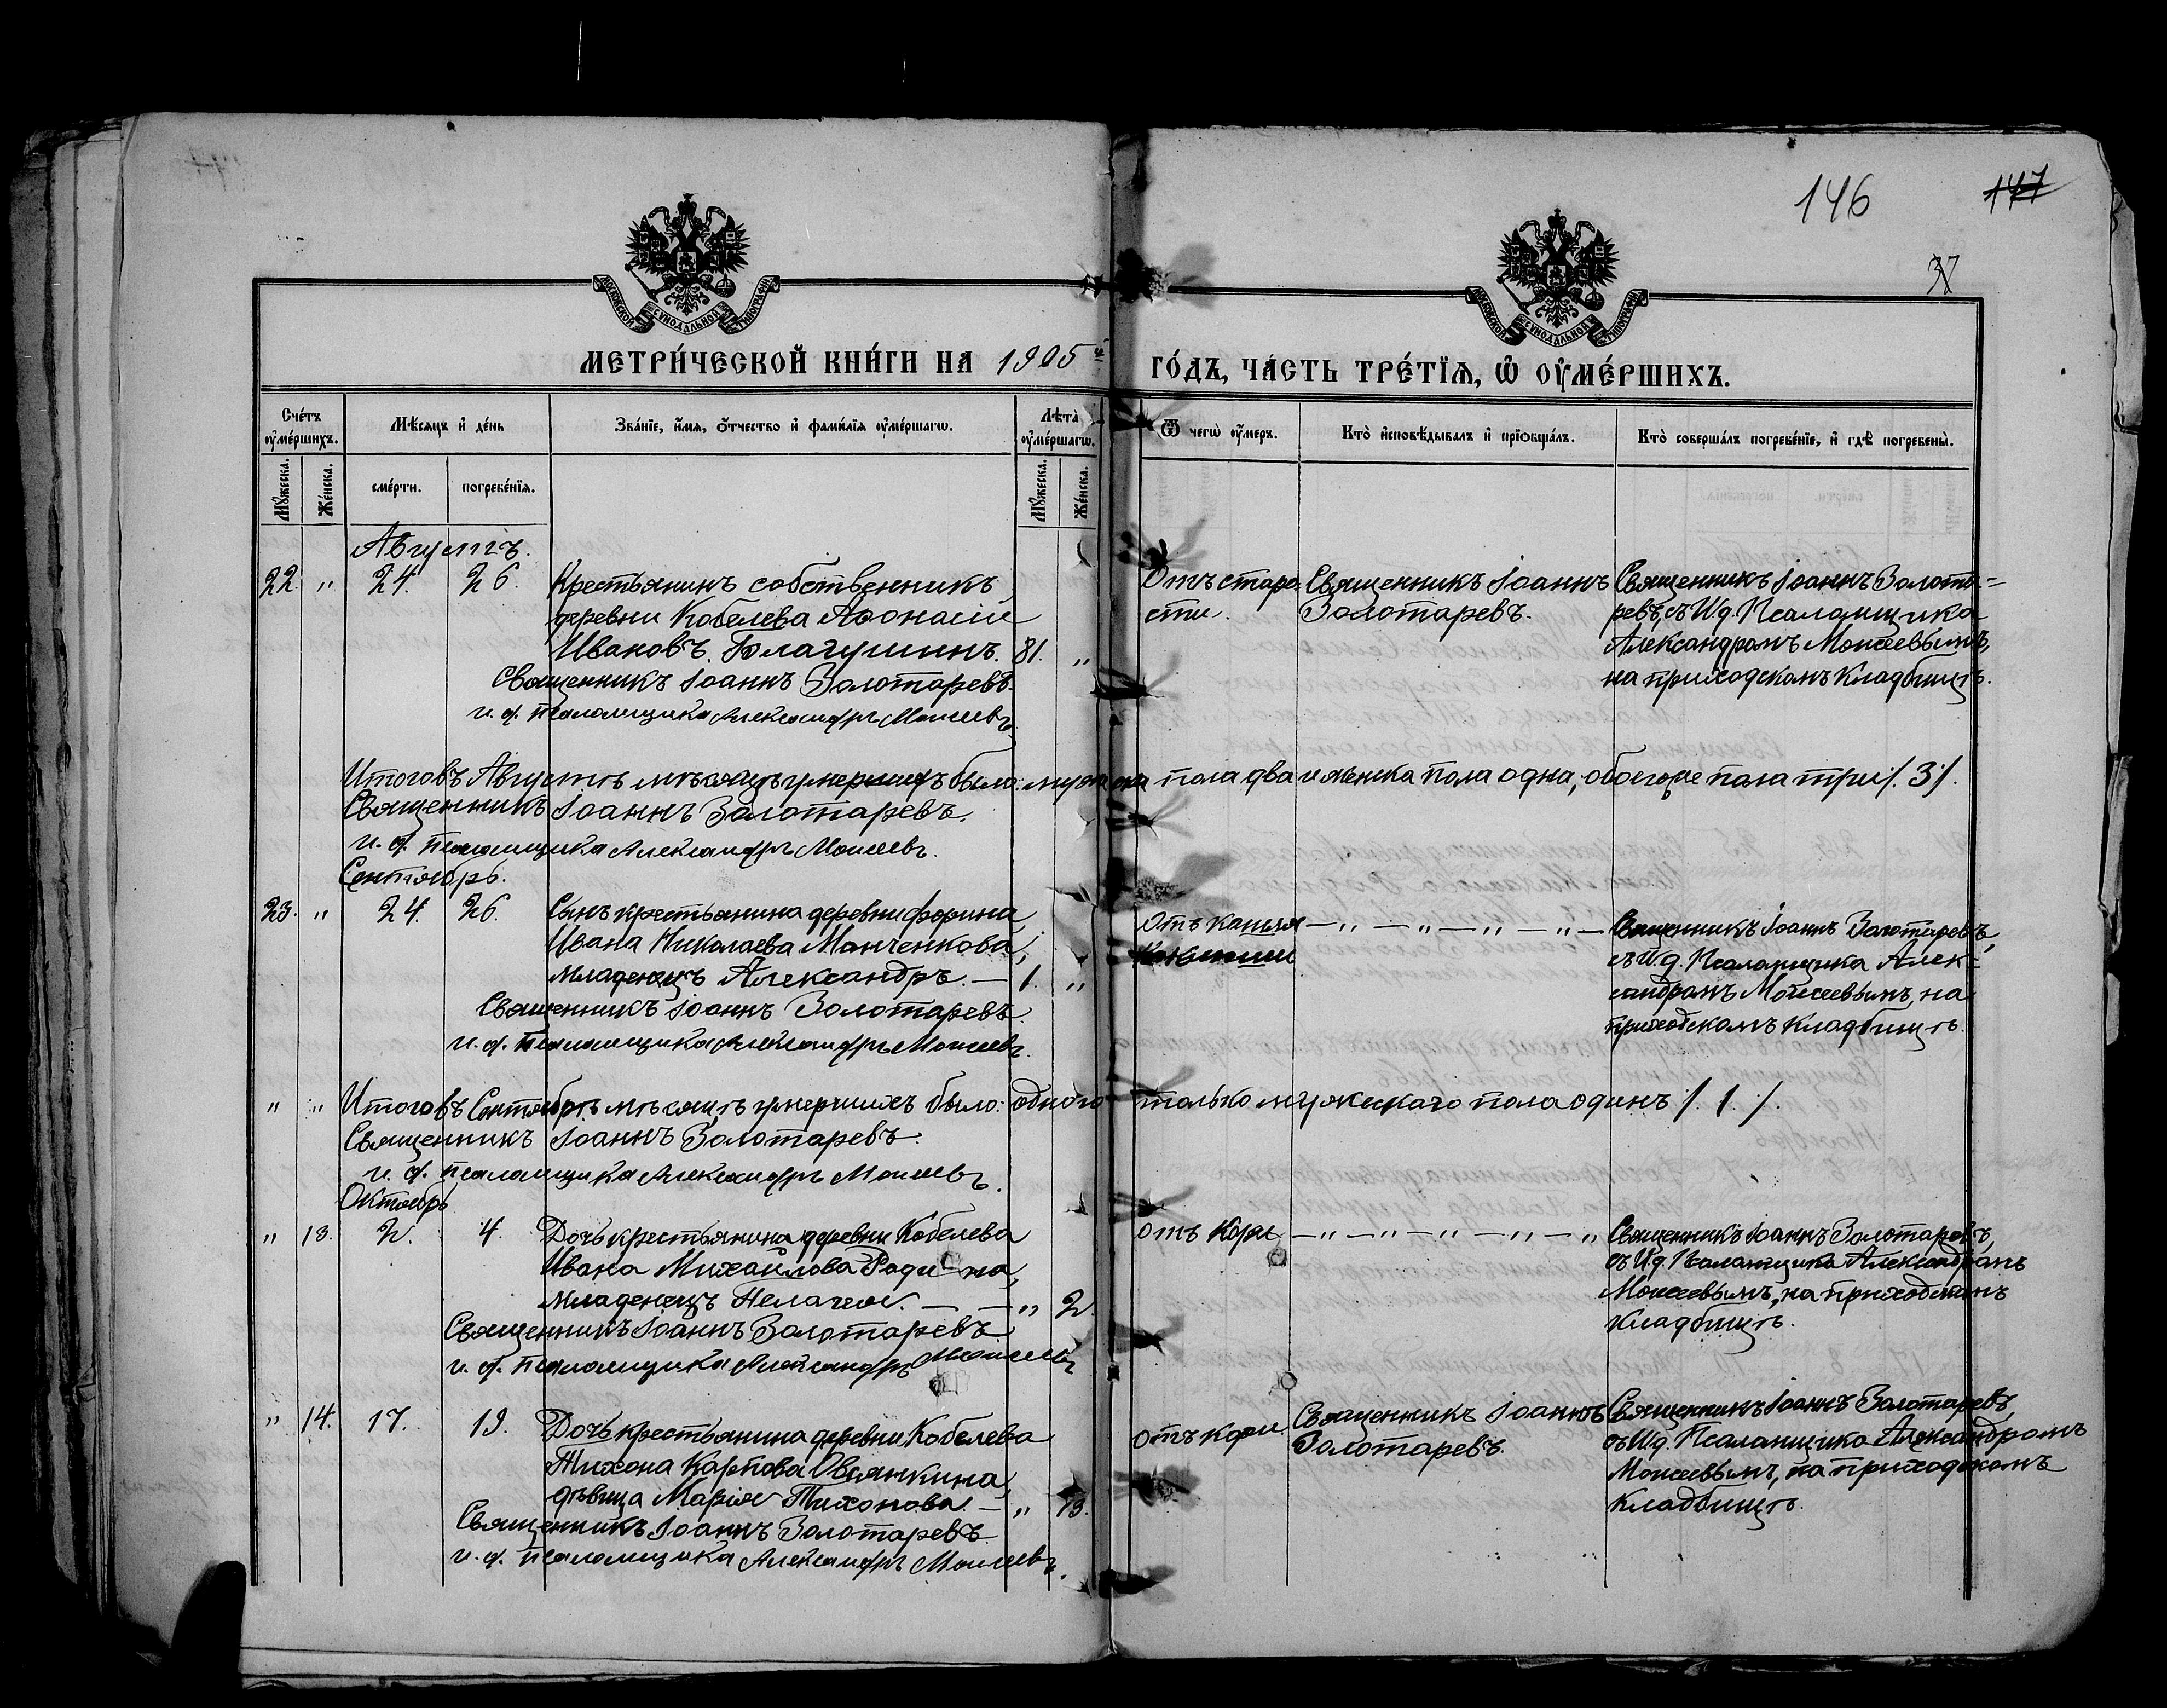 146
147
37
МОСКОВСКОЙ СѴНОДАЛЬНОЙ ТИПОГРАФІИ
МОСКОВСКОЙ СѴНОДАЛЬНОЙ ТИПОГРАФІИ
МЕТРИ́ЧЕСКОЙ КНИ́ГИ НА 1905й ГО́ДЪ, ЧА́СТЬ ТРЕ́ТЇѦ, Ѡ ОУ҆МЕ́РШИХЪ.
Сче́тъ оу҆ме́ршихъ.
Мѣ́сяцъ и҆ де́нь
Зва́нїе, и҆́мя, о҆́тчество и҆ фами́лїя оу҆ме́ршагѡ.
Лѣ́та оу҆ме́ршагѡ.
Ѿ чегѡ̀ оу҆́меръ.
Кто̀ и҆сповѣ́дывалъ и҆ прїѡбща́лъ.
Кто̀ соверша́лъ погребе́нїе, и҆ гдѣ̀ погребены̀.
Мꙋ́жеска. Же́нска. сме́рти. погребе́нїя. Мꙋ́жеска. Же́нска.
Августъ.
22. „ 24. 26. Крестьянинъ собственникъ
деревни Кобелева Аѳонасій
Ивановъ 81. „
Священникъ Іоаннъ Золотаревъ.
и. д. псаломщика Александръ Моисеевъ.
Отъ старо-
сти.
Священникъ Іоаннъ
Золотаревъ.
Священникъ Іоаннъ Золота-
ревъ, съ И.д. Псаломщика
Александромъ Моисеевымъ,
на приходскомъ кладбищѣ.
Итого въ Августѣ мѣсяцѣ умершихъ было: мужеска пола два и женска пола одна, обоего же пола три /.3/.
Священникъ Іоаннъ Золотаревъ.
и. д. псаломщика Александръ Моисеевъ.
Сентябрь.
23. „ 24. 26. Сынъ крестьянина деревни Форина
Ивана Николаева Манченкова,
младенецъ Александръ. — 1. „
Священникъ Іоаннъ Золотаревъ.
и. д. псаломщика Александръ Моисеевъ.
Отъ кашля — „ — „ — „ — „ —
Священникъ Іоаннъ Золотаревъ,
съ И.д. Псаломщика Алек-
сандромъ Моисеевымъ, на
приходскомъ кладбищѣ.
„ „ Итого въ Сентябрѣ мѣсяцѣ умершихъ было: одного только мужескаго пола одинъ /.1./.
Священникъ Іоаннъ Золотаревъ.
и. д. псаломщика Александръ Моисеевъ.
Октябрь
„ 13. 2. 4. Дочь крестьянина деревни Кобелева
Ивана Михайлова Родина,
младенецъ Пелагея. — — „ 2.
Священникъ Іоаннъ Золотаревъ.
и. д. псаломщика Александръ Моисеевъ
отъ кори — „ — „ — „ — „ — „
Священникъ Іоаннъ Золотаревъ,
съ И.д. Псаломщика Александромъ
Моисеевымъ, на приходскомъ
кладбищѣ.
„ 14. 17. 19. Дочь крестьянина деревни Кобелева
Тихона Карпова Овсянкина,
дѣвица Марія Тихонова. — „ 13.
Священникъ Іоаннъ Золотаревъ.
и. д. псаломщика Александръ Моисеевъ.
отъ кори.
Священникъ Іоаннъ
Золотаревъ.
Священникъ Іоаннъ Золотаревъ,
съ И.д. Псаломщика Александромъ
Моисеевымъ, на приходскомъ
кладбищѣ.